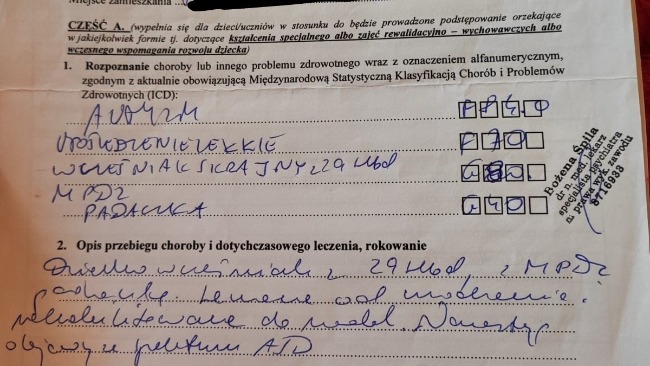 Miejsce zamieszkania
CZĘŚĆ A. (wypełnia się dla dzieci/uczniów w stosunku do będzie prowadzone postępowanie orzekające
w jakiejkolwiek formie tj. dotyczące kształcenia specjalnego albo zajęć rewalidacyjno – wychowawczych albo
wczesnego wspomagania rozwoju dziecka)
1. Rozpoznanie choroby lub innego problemu zdrowotnego wraz z oznaczeniem alfanumerycznym,
zgodnym z aktualnie obowiązującą Międzynarodową Statystyczną Klasyfikacją Chorób i Problemów
Zdrowotnych (ICD):
AUTYZM F84.0
UPOŚLEDZENIE LEKKIE F70
WCZEŚNIAK SKRAJNY z 29 Hbd
MPDz
PADACZKA G40
Bożena Śpila
dr n. med. lekarz
specjalista psychiatra
nr prawa wyk. zawodu
8716933
2. Opis przebiegu choroby i dotychczasowego leczenia, rokowanie
Dziecko wcześniak z 29 Hbd, z MPDz
padaczką. Leczone od urodzenia.
do nadal.
objawy z spektrum ASD